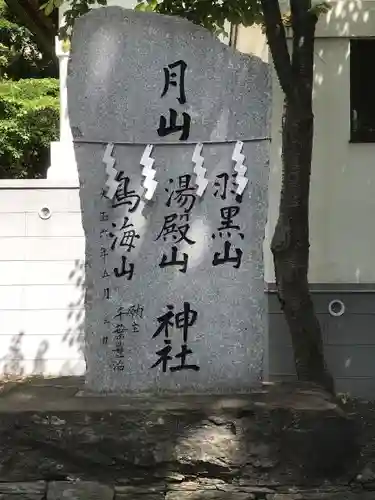 月山
羽黒山
湯殿山
鳥海山
神社
願主
千葉
大正六年五月